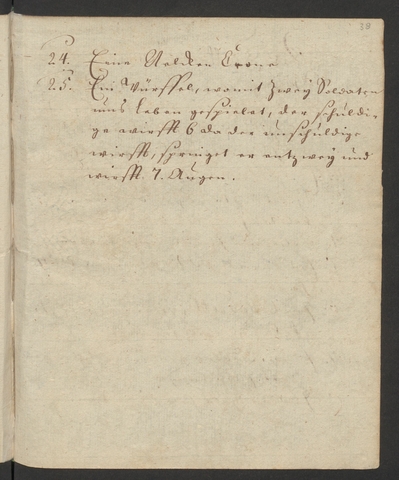 38
24. Eine Nelcken Crone
25. Ein Würffel, womit zwey Soldaten
ums leben gespielet, der schuldi-
ge wirfft 6 da der unschuldige
wirfft, springet er entzwey und
wirfft 7. Augen.